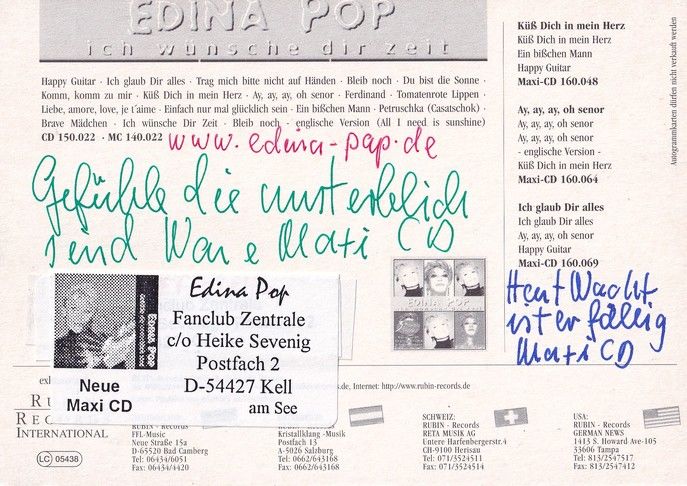 EDINA POP
ich wünsche dir zeit
Happy Guitar · Ich glaub Dir alles · Trag mich bitte nicht auf Händen · Bleib noch · Du bist die Sonne ·
Komm, komm zu mir · Küß Dich in mein Herz · Ay, ay, ay, oh senor · Ferdinand · Tomatenrote Lippen ·
Liebe, amore, love, je t´aime · Einfach nur mal glücklich sein · Ein bißchen Mann · Petruschka (Casatschok) ·
Brave Mädchen · Ich wünsche Dir Zeit · Bleib noch - englische Version (All I need is sunshine)
CD 150.022 · MC 140.022
www.edina-pop.de
Gefühle die unsterblich
sind War e Maxi CD
Küß Dich in mein Herz
Küß Dich in mein Herz
Ein bißchen Mann
Happy Guitar
Maxi-CD 160.048
Ay, ay, ay, oh senor
Ay, ay, ay, oh senor
Ay, ay, ay, oh senor
- englische Version -
Küß Dich in mein Herz
Maxi-CD 160.064
Ich glaub Dir alles
Ich glaub Dir alles
Ay, ay, ay, oh senor
Happy Guitar
Maxi-CD 160.069
Heut Nacht
ist er fällig
Maxi CD
Autogrammkarten dürfen nicht verkauft werden
EDINA POP
EDINA POP
Neue
Maxi CD
Edina Pop
Fanclub Zentrale
c/o Heike Sevenig
Postfach 2
D-54427 Kell
am See
.de, Internet: http://www.rubin-records.de
INTERNATIONAL
LC 05438
RUBIN - Records
FFL-Music
Neue Straße 15a
D-65520 Bad Camberg
Tel: 06434/6051
Fax: 06434/4420
RUBIN - Records
Kristallklang -Musik
Postfach 13
A-5026 Salzburg
Tel: 0662/643168
Fax: 0662/643168
SCHWEIZ:
RUBIN - Records
RETA MUSIK AG
Untere Harfenbergerstr.4
CH-9100 Herisau
Tel: 071/3524511
Fax: 071/3524514
USA:
RUBIN - Records
GERMAN NEWS
1413 S. Howard Ave-105
33606 Tampa
Tel: 813/2547517
Fax: 813/2547412